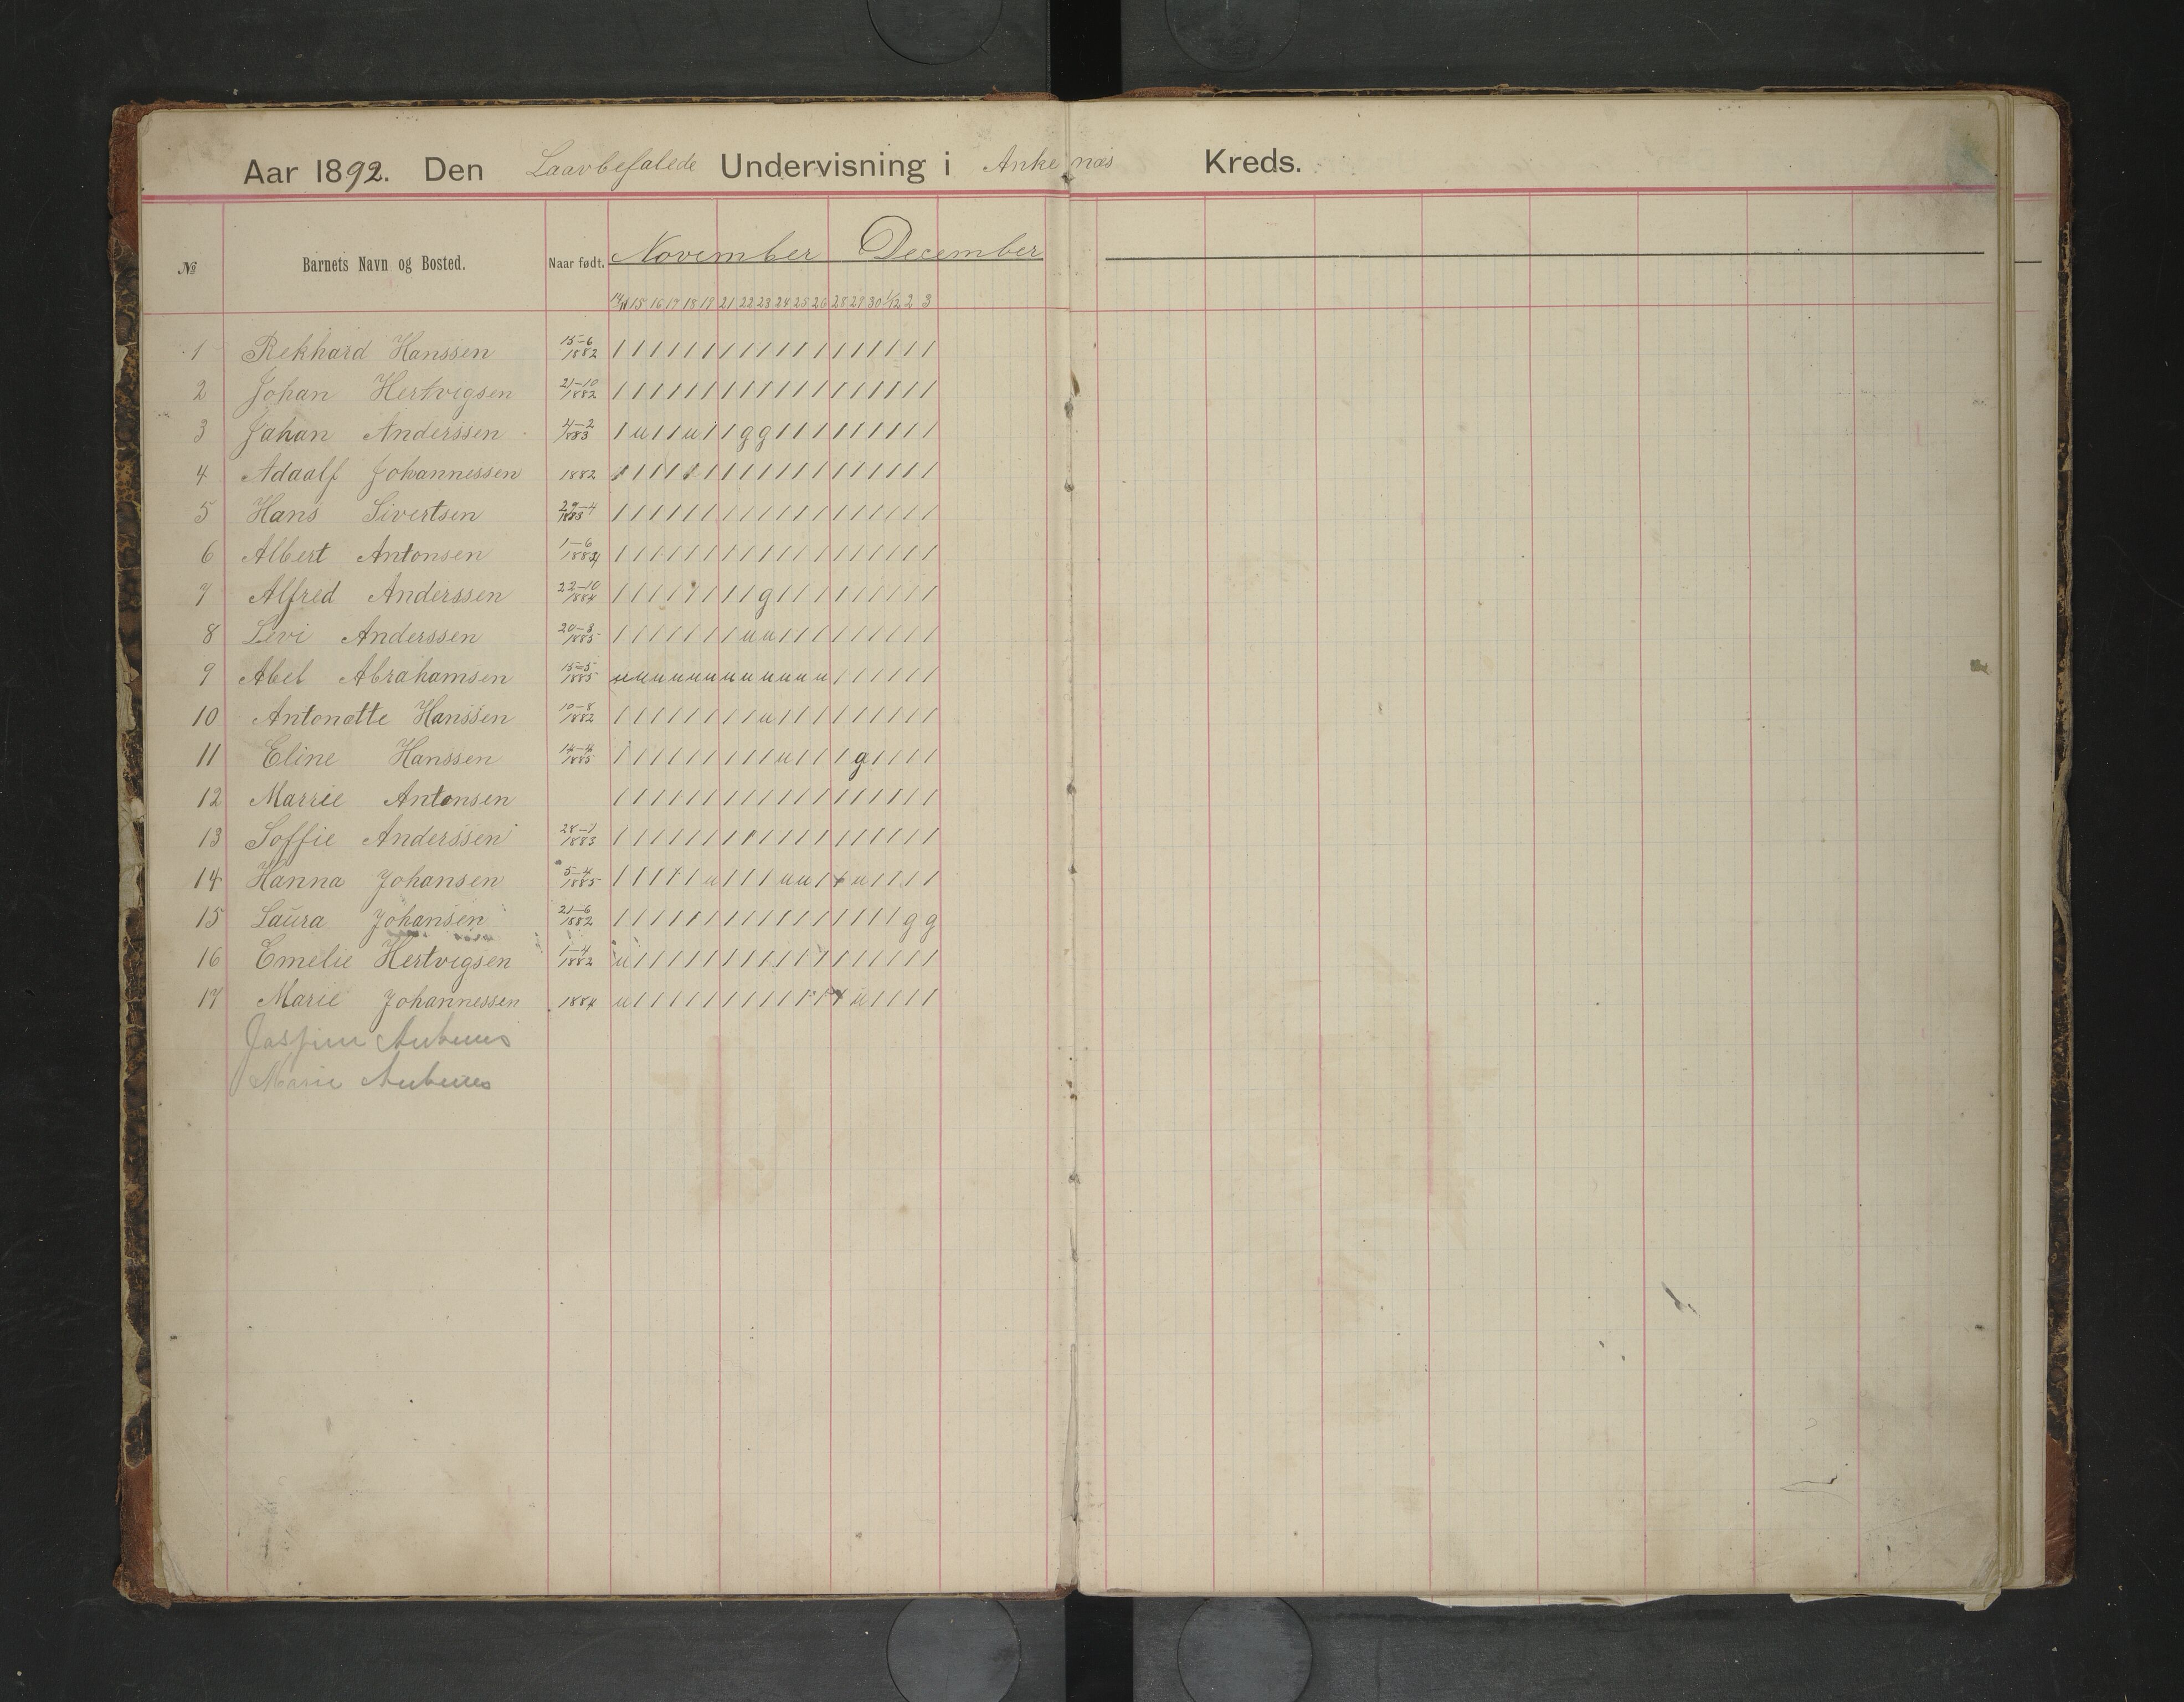 Aar 1892. Den Laavbefalede Undervisning i Ankenæs Kreds.
№ Barnets Navn og Bosted. Naar født. November December
14/11 15 16 17 18 19 21 22 23 24 25 26 28 29 30 1/12 2 3
1 Rekhard Hanssen 15-6 1882 / / / / / / / / / / / / / / / / / /
2 Johan Hertvigsen 21-10 1882 / / / / / / / / / / / / / / / / / /
3 Jahan Anderssen 4-2 1883 / u / / u / / g g / / / / / / / / /
4 Adaalf Johannessen 1882 / / / / / / / / / / / / / / / / / /
5 Hans Sivertsen 1883 / / / / / / / / / / / / / / / / / /
6 Albert Antonsen 1-6 / / / / / / / / / / / / / / / / / /
7 Alfred Anderssen 22-10 1884 / / / / / / / / g / / / / / / / / /
8 Levi Anderssen 20-3 1885 / / / / / / / u u / / / / / / / / /
9 Abel Abrahamsen 15-5 1885 u u u u u u u u u u u u / / / / / /
10 Antonette Hanssen 10-8 1882 / / / / / / / / u / / / / / / / / /
11 Eline Hanssen 14-4 1885 / / / / / / / / / u / / / g / / / /
12 Marrie Antonsen / / / / / / / / / / / / / / / / / /
13 Soffie Anderssen 28-1 1883 / / / / / / / / / / / / / / / / / /
14 Hanna Johansen 5-4 1885 / / / / / u / / / u u / / u / / / /
15 Laura Johansen 21-6 1882 / / / / / / / / / / / / / / / / g g
16 Emelie Hertvigsen 1-4 1882 u / / / / / / / / / / / / / / / / /
17 Marie Johannessen 1884 u / / / / / / / / / / / / u / / / /
Marie